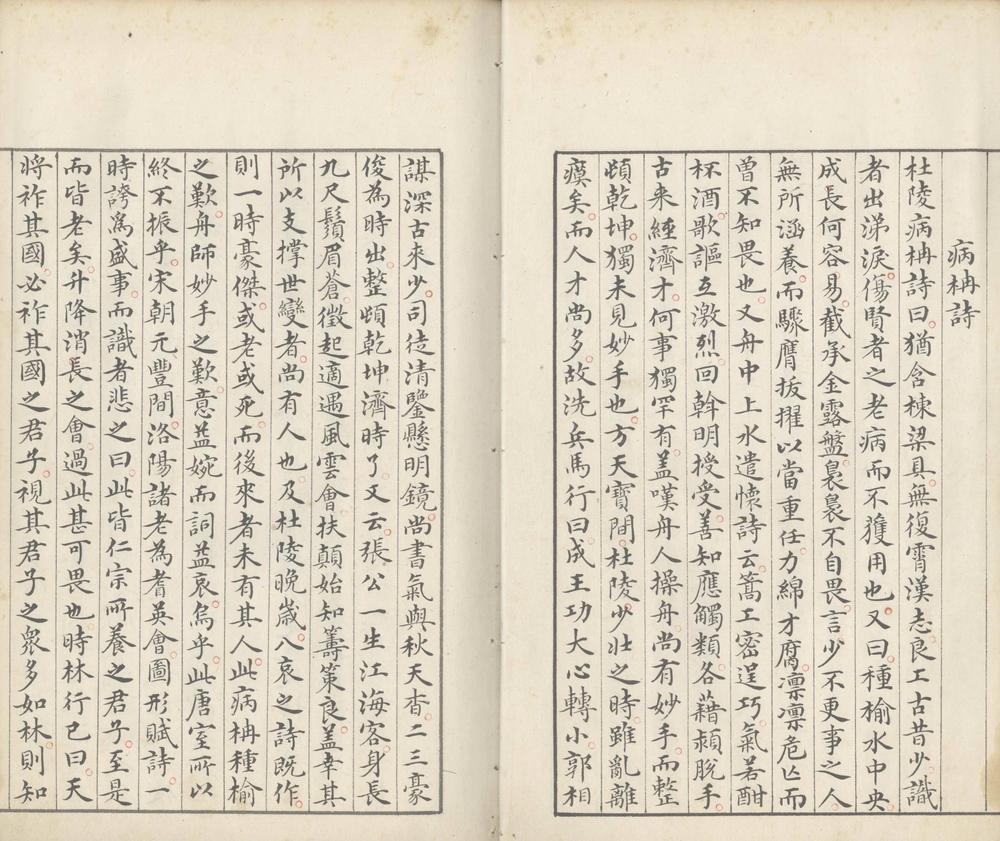 病柟詩
杜陵病柟詩曰猶含棟梁具無復霄漢志良工古昔少識
者出涕淚傷賢者之老病而不獲用也又曰種榆水中央
成長何容易截承金露盤裊裊不自畏言少不更事之人
無所涵養而驟膺拔擢以當重任力綿才腐凛凛危亾而
曽不知畏也又舟中上水遣懷詩云蒿工密逞巧氣若酣
杯酒歌謳互激烈回斡明授受善知應觸類各藉穎脫手
古来經濟才何事獨罕有盖嘆舟人操舟尚有妙手而整
頓乾坤獨未見妙手也方天寶間杜陵少壮之時雖亂離
瘼矣而人才尚多故洗兵馬行曰成王功大心轉小郭相
謀深古來少司徒清鑒懸明鏡尚書氣與秋天杳二三豪
俊為時出整頓乾坤濟時了又云張公一生江海客身長
九尺鬚眉蒼徵起適遇風雲會扶顛始知籌策良盖幸其
所以支撑世變者尚有人也及杜陵晚歳八哀之詩既作
則一時豪傑或老或死而後來者未有其人此病柟種榆
之歎舟師妙手之歎意益婉而詞益哀烏乎此唐室所以
終不振乎宋朝元豐間洛陽諸老為耆英會圖形賦詩一
時誇爲盛事而識者悲之曰此皆仁宗所養之君子至是
而皆老矣升降消長之會過此甚可畏也時林行已曰天
將祚其國必祚其國之君子視其君子之衆多如林則知